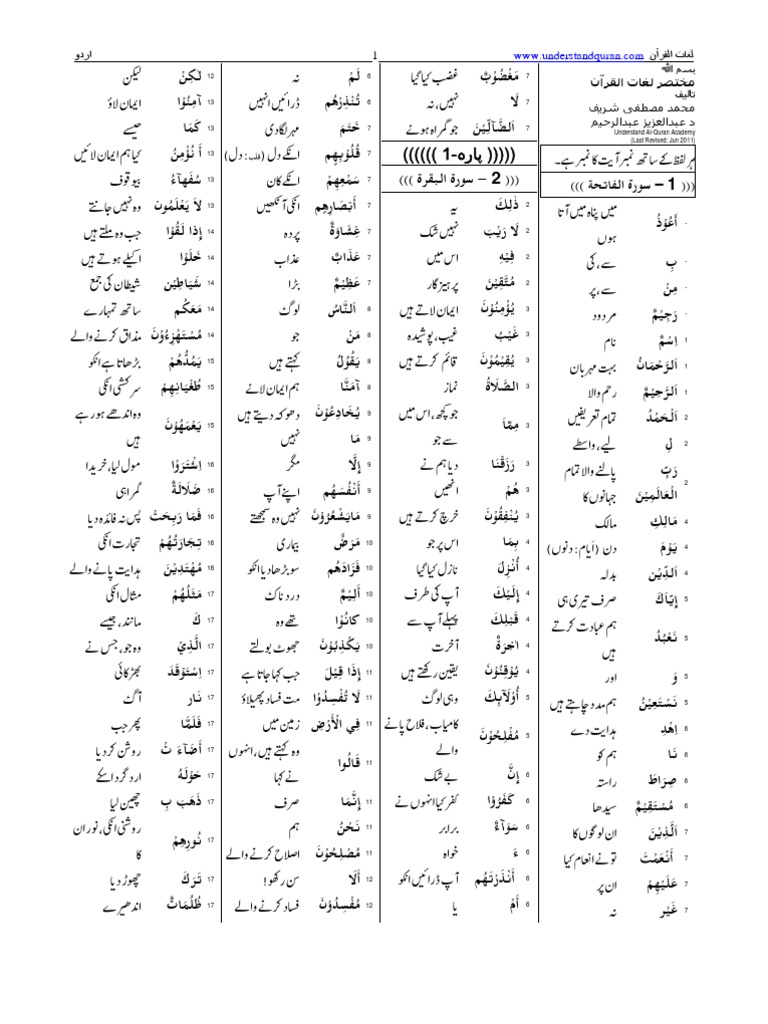 لغات القرآن www.understandquran.com 1 اردو
بسم الله
مختصر لغات القرآن
تالیف
محمد مصطفی شریف
د عبدالعزیز عبدالرحیم
Understand Al-Quran Academy
(Last Revised: Jun 2011)
ہر لفظ کے ساتھ نمبر آیت کا نمبر ہے۔
((( 1 – سورة الفاتحة )))
- أَعُوْذُ میں پناہ میں آتا
ہوں
- بِ سے، کی
- مِنْ سے، پر
- رَجِيْمٌ مردود
1 اِسْمٌ نام
1 اَلرَّحْمَانُ بہت مہربان
1 اَلرَّحِيْمُ رحم والا
2 اَلْحَمْدُ تمام تعریفیں
2 لِ لیے، واسطے
2 رَبِّ پالنے والا تمام
الْعَالَمِيْنَ جہانوں کا
4 مَالِكِ مالک
4 يَوْمَ دن (اَیام: دنوں)
4 اَلدِّيْنَ بدلہ
5 إِيَّاكَ صرف تیری ہی
5 نَعْبُدُ ہم عبادت کرتے
ہیں
5 وَ اور
5 نَسْتَعِيْنُ ہم مدد چاہتے ہیں
6 اِهْدِ ہدایت دے
6 نَا ہم کو
6 صِرَاطَ راستہ
6 مُسْتَقِيْمٌ سیدھا
7 اَلَّذِيْنَ ان لوگوں کا
7 أَنْعَمْتَ تونے انعام کیا
7 عَلَيْهِمْ ان پر
7 غَيْرِ نہ
7 مَغْضُوْبٌ غضب کیا گیا
7 لَا نہیں، نہ
7 اَلضَّآلِّيْنَ جو گمراہ ہوئے
((((( پاره-1 ))))))
((( 2 – سورة البقرة )))
2 ذٰلِكَ یہ
2 لَا رَيْبَ نہیں شک
2 فِيْهِ اس میں
2 مُتَّقِيْنَ پرہیزگار
3 يُؤْمِنُوْنَ ایمان لاتے ہیں
3 غَيْبُ غیب، پوشیدہ
3 يُقِيْمُوْنَ قائم کرتے ہیں
3 الصَّلَاةُ نماز
3 مِمَّا جو کچھ، اس میں
سے جو
3 رَزَقْنَا دیا ہم نے
3 هُمْ انھیں
3 يُنْفِقُوْنَ خرچ کرتے ہیں
4 بِمَا اس پر جو
4 أُنْزِلَ نازل کیا گیا
4 إِلَيْكَ آپ کی طرف
4 قَبْلِكَ پہلے آپ سے
4 اٰخِرَةُ آخرت
4 يُوْقِنُوْنَ یقین رکھتے ہیں
5 أُوْلَآئِكَ وہی لوگ
5 مُفْلِحُوْنَ کامیاب، فلاح پانے
والے
6 إِنَّ بے شک
6 كَفَرُوْا کفر کیا انہوں نے
6 سَوَآءٌ برابر
6 ءَ خواہ
6 أَنْذَرْتَهُم آپ ڈرائیں انکو
6 أَمْ یا
6 لَمْ نہ
6 تُنْذِرْهُم ڈرائیں انہیں
7 خَتَمَ مہر لگا دی
7 قُلُوْبِهِم انکے دل (قلب: دل)
7 سَمْعِهِمْ انکے کان
7 أَبْصَارِهِم انکی آنکھیں
7 غِشَاوَةٌ پردہ
7 عَذَابٌ عذاب
7 عَظِيْمٌ بڑا
8 اَلنَّاسُ لوگ
8 مَنْ جو
8 يَقُوْلُ کہتے ہیں
8 آمَنَّا ہم ایمان لائے
9 يُخَادِعُوْنَ دھوکہ دیتے ہیں
9 مَا نہیں
9 إِلَّا مگر
9 أَنْفُسَهُم اپنے آپ
9 مَايَشْعُرُوْنَ نہیں وہ سمجھتے
10 مَرَضٌ بیماری
10 فَزَادَهُم سو بڑھا دیا انکو
10 أَلِيْمٌ دردناک
10 كَانُوْا تھے وہ
10 يَكْذِبُوْنَ جھوٹ بولتے
11 إِذَا قِيْلَ جب کہا جاتا ہے
11 لَا تُفْسِدُوْا مت فساد پھیلاؤ
11 فِي الْأَرْضِ زمین میں
11 قَالُوا وہ کہتے ہیں، انہوں
نے کہا
11 إِنَّمَا صرف
11 نَحْنُ ہم
11 مُصْلِحُوْنَ اصلاح کرنے والے
12 أَلَا سن رکھو!
12 مُفْسِدُوْنَ فساد کرنے والے
12 لَكِنْ لیکن
13 آمِنُوْا ایمان لاؤ
13 كَمَا جیسے
13 أَ نُؤْمِنُ کیا ہم ایمان لائیں
13 سُفَهَآءُ بیوقوف
13 لَا يَعْلَمُون وہ نہیں جانتے
14 إِذَا لَقُوْا جب وہ ملتے ہیں
14 خَلَوْا اکیلے ہوتے ہیں
14 شَيَاطِيْن شیطان کی جمع
14 مَعَكُم ساتھ تمہارے
14 مُسْتَهْزِءُوْنَ مذاق کرنے والے
15 يَمُدُّهُمْ بڑھاتا ہے انکو
15 طُغْيَانِهِمْ سرکشی انکی
15 يَعْمَهُوْنَ وہ اندھے ہو رہے
ہیں
16 اِشْتَرَوْا مول لیا، خریدا
16 ضَلَالَةٌ گمراہی
16 فَمَا رَبِحَتْ پس نہ فائدہ دیا
16 تِجَارَتُهُمْ تجارت انکی
16 مُهْتَدِيْنَ ہدایت پانے والے
17 مَثَلُهُمْ مثال انکی
17 كَ مانند، جیسے
17 الَّذِيْ وہ جو، جس نے
17 اِسْتَوْقَدَ بھڑکائی
17 نَار آگ
17 فَلَمَّا پھر جب
17 أَضَآءَ تْ روشن کر دیا
17 حَوْلَهُ ارد گرد اسکے
17 ذَهَبَ بِ چھین لیا
17 نُورِهِمْ روشنی انکی، نور ان
کا
17 تَرَكَ چھوڑ دیا
17 ظُلُمَاتٌ اندھیرے